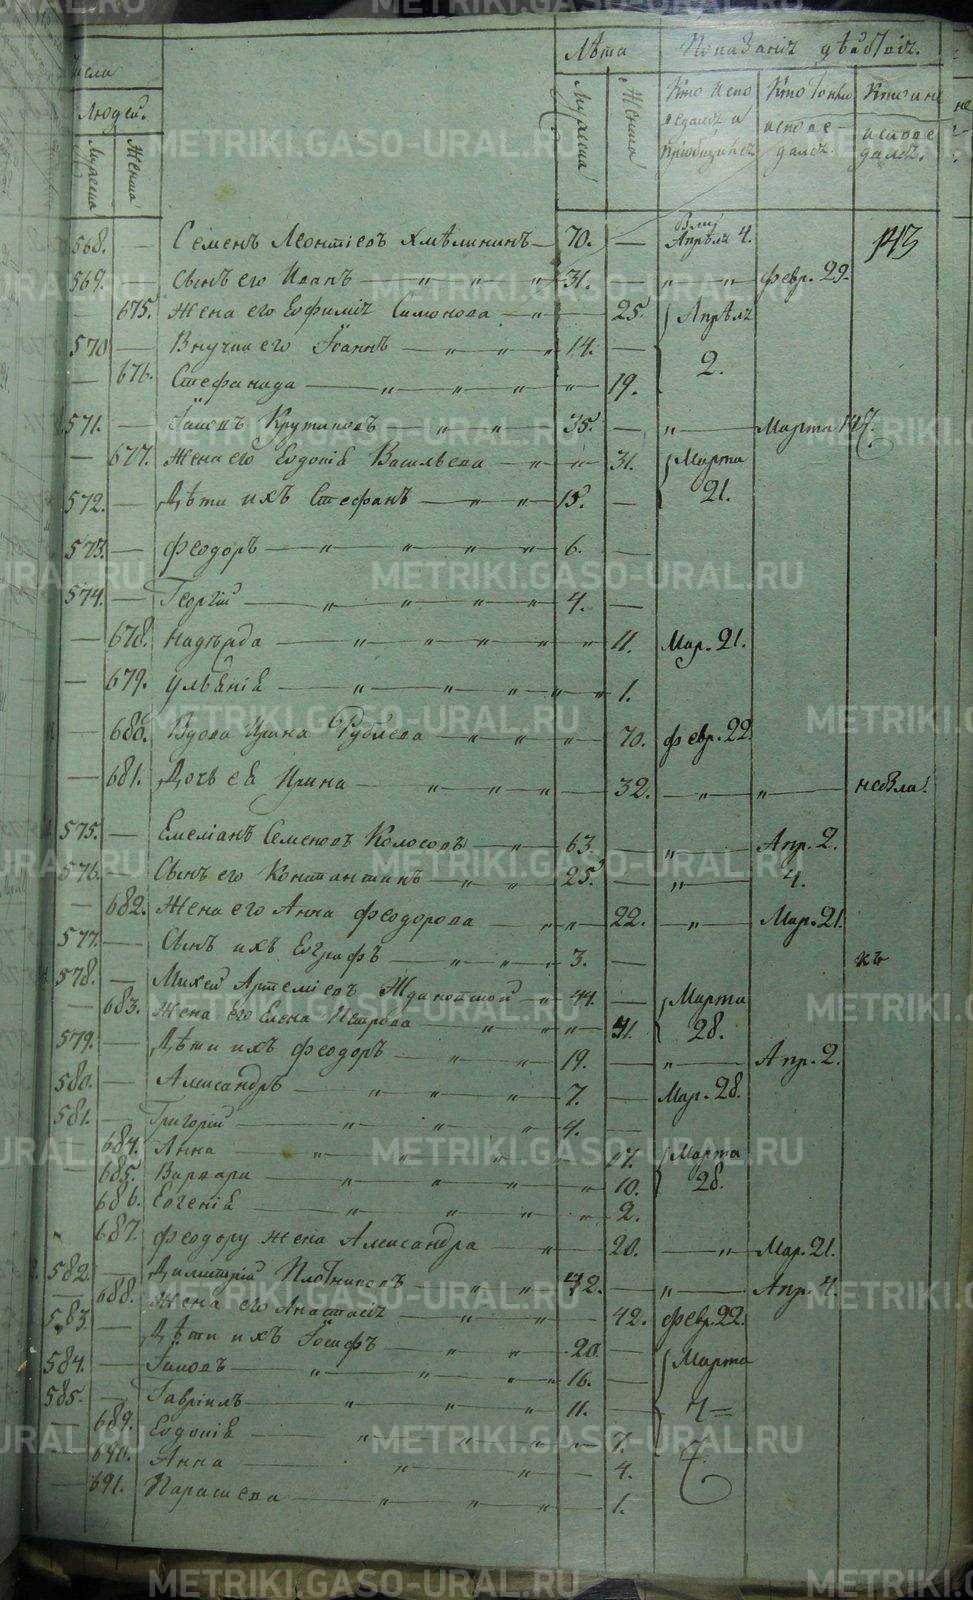 Числа Лѣта Показаніе дѣйствія.
Людей. Мужеска Женска Мужеска Женска Кто испо Кто токмо Кто и не
ведался и испове исповѣ
пріобщился дался. дался.
143
568. — Семенъ Леонтіевъ Хмѣлининъ — 70. — Апрѣля 4.
569. — Сынъ его Иванъ — " — " — " 31. — " — " — Февр. 29.
— 675. Жена его Евфимія Симонова — " — 25. Апрѣля
570 — Внучки его Іоаннъ — " — " — " 14. — 2.
— 676. Стефанида — " — " — " — " — 19.
571. — Іаковъ Крутиковъ — " — " — 35. — " — Марта 14
— 677. Жена его Евдокія Васильева — " — " — 31. Марта
572. — Дѣти ихъ Стефанъ — " — " — 15. — 21.
573. — Феодоръ — " — " — " — " — 6. —
574. — Георгій — " — " — " — " — 4. —
— 678. Надежда — " — " — " — " — " — 11. Мар. 21.
— 679. Ульянія — " — " — " — " — " — 1.
— 680. Вдова Ирина Рублева — " — " — " — 70. Февр. 22.
— 681. Дочь ея Ирина — " — " — " — 32. — " — " — небыла.
575. — Емеліанъ Семеновъ Колосовъ — " — 63. — " — Апр. 2.
576. — Сынъ его Константинъ — " — " — 25. — " — 4.
— 682. Жена его Анна Феодорова — " — " — 22. — " — Мар. 21.
577. — Сынъ ихъ Евграфъ — " — " — " 3. —
578. — Михей Артеміевъ — " — 44. — Марта
— 683. Жена его Елена Петрова — " — " — 41. 28.
579. — Дѣти ихъ Феодоръ — " — " — 19. — " — Апр. 2.
580. — Александръ — " — " — " — 7. — Мар. 28.
581. — Григорій — " — " — " — 4. —
— 684. Анна — " — " — " — " — 17. Марта
— 685. Варвара — " — " — " — " — 10. 28.
— 686. Евгенія — " — " — " — " — 2.
— 687. Феодору жена Александра — " — 20. — " — Мар. 21.
582. — Димитрій Плотниковъ — " — " — 42. — " — Апр. 4.
— 688. Жена его Анастасія — " — " — 42. Февр. 22.
583. — Дѣти ихъ Іосифъ — " — " — 20. — Марта
584. — Іаковъ — " — " — " — " 16. —
585. — Гавріилъ — " — " — " — 11. — 7
— 689. Евдокія — " — " — " — " — 7.
— 690. Анна — " — " — 4.
— 691. Параскева — " — " — " — 1.
METRIKI.GASO-URAL.RU